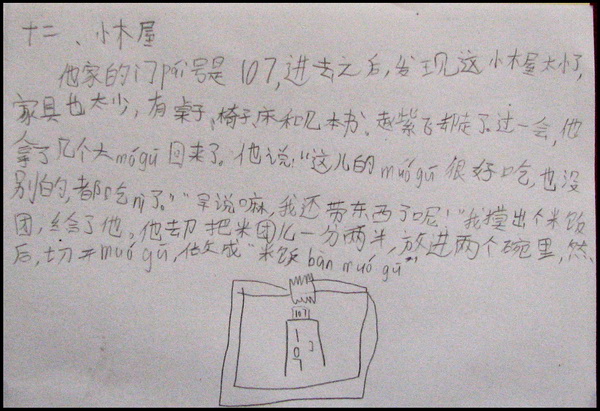 十二、小木屋
他家的门pái号是107,进去之后,发现这小木屋太小了,
家具也太少,有桌子、椅子、床和几本书。赵紫飞却走了。过一会,他
拿了几个大mógū回来了。他说:“这儿的mógū很好吃,也没
别的,都吃nì了。”“早说嘛,我还带东西了呢!”我摸出个米饭
团,给了他。他却把米团儿一分两半,放进两个碗里,然
后,切开mógū,做成“米饭bàn mógū”
107